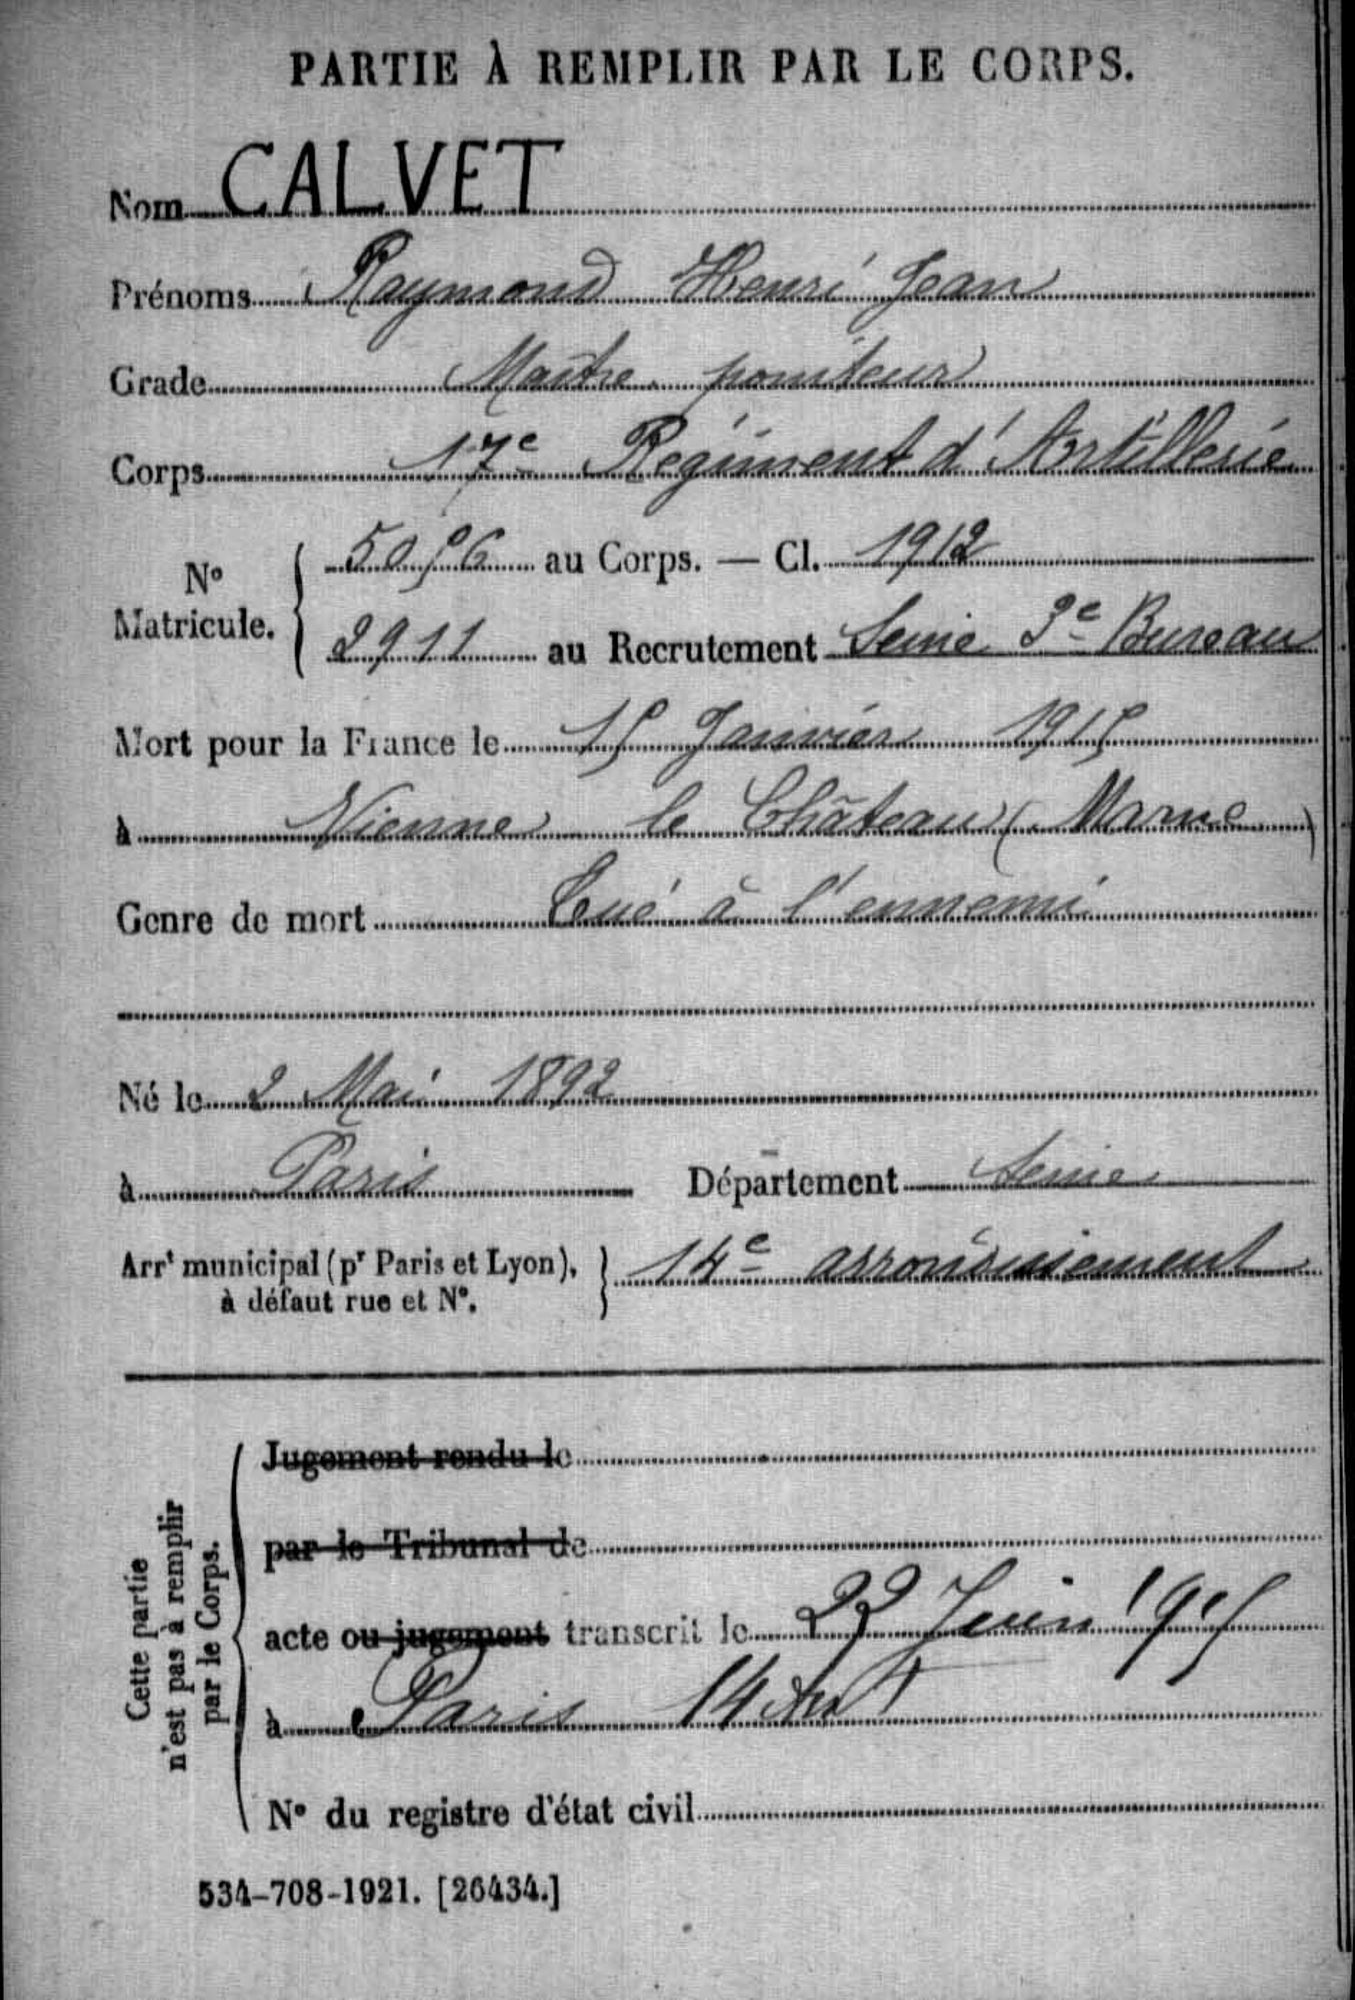 PARTIE À REMPLIR PAR LE CORPS.
Nom CALVET
Prénoms Raymond Henri Jean
Grade Maître pointeur
Corps 17e Régiment d'Artillerie
No Matricule. 5056 au Corps. — Cl. 1912
2911 au Recrutement Seine 3e Bureau
Mort pour la France le 15 Janvier 1915
à Vienne le Château (Marne)
Genre de mort Tué à l'ennemi
Né le 2 Mai 1892
à Paris Département Seine
Arrt municipal (pr Paris et Lyon), à défaut rue et No. 14e arrondissement
Cette partie n'est pas à remplir par le Corps.
Jugement rendu le
par le Tribunal de
acte ou jugement transcrit le 23 Juin 1915
à Paris 14 Arrt
No du registre d'état civil
534-708-1921. [26434.]